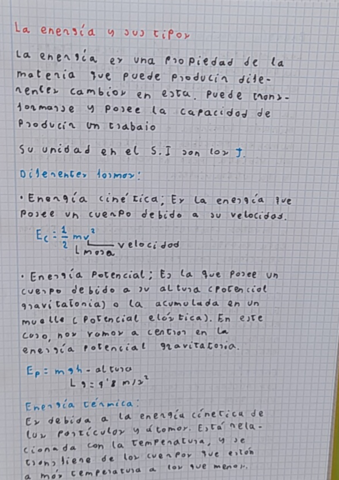 La energía y sus tipos
La energía es una propiedad de la
materia que puede producir dife-
rentes cambios en esta. Puede trans-
formarse y posee la capacidad de
producir un trabajo
Su unidad en el S.I son los J.
Diferentes formas:
· Energía cinética; Es la energía que
posee un cuerpo debido a su velocidad.
Ec = 1/2 mv²
velocidad
masa
· Energía Potencial; Es la que posee un
cuerpo debido a su altura (Potencial
gravitatoria) o la acumulada en un
muelle (Potencial elástica). En este
caso, nos vamos a centrar en la
energía potencial gravitatoria.
Ep = mgh - altura
g = 9'8 m/s²
Energía térmica:
Es debida a la energía cinética de
las partículas y átomos. Está rela-
cionada con la temperatura, y se
transfiere de los cuerpos que están
a más temperatura a los que menos.